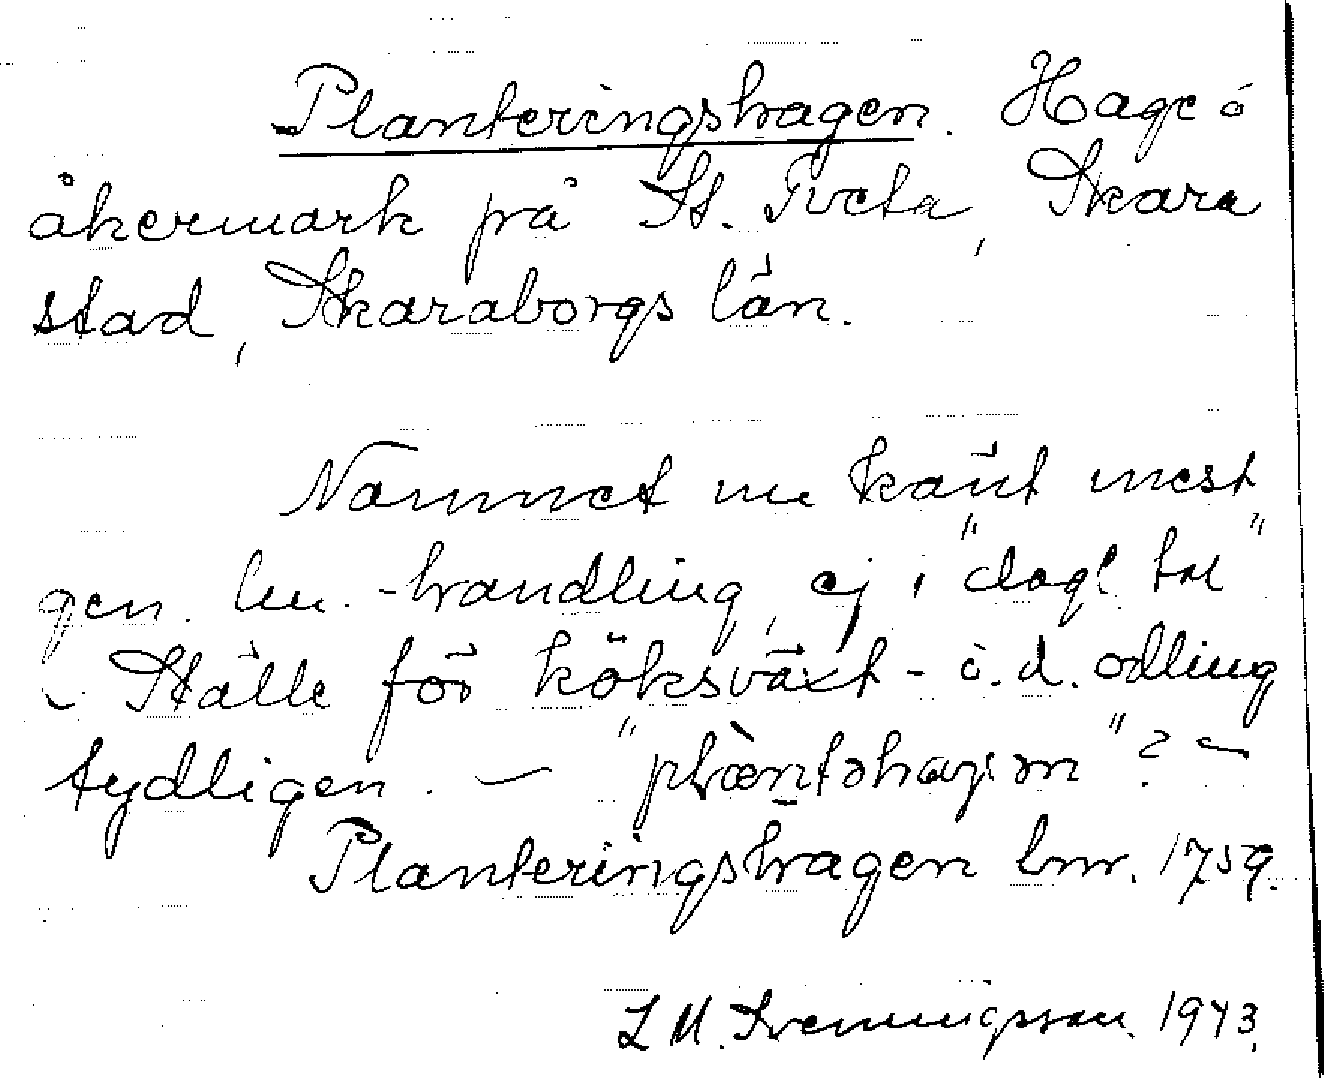 Planteringshagen. Hage o
åkermark på St. Tveta, Skara
stad, Skaraborgs län.
Namnet nu känt mest
gen. lm.-handling, ej i "dagl. tal"
- Ställe för köksväxt- o. d. odling
tydligen. - "? -
Planteringshagen lmr. 1759.
L M. Svenningsson. 1943.